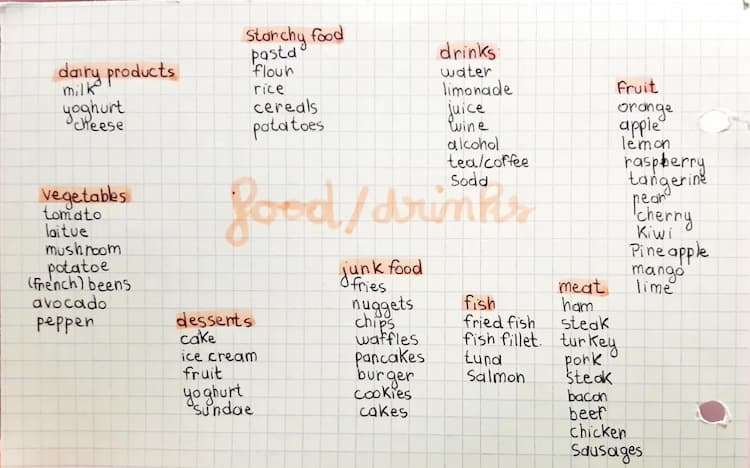 dairy products
milk
yoghurt
cheese
starchy food
pasta
flour
rice
cereals
potatoes
drinks
water
limonade
juice
wine
alcohol
tea/coffee
Soda
Fruit
orange
apple
lemon
raspberry
tangerine
pear
cherry
Kiwi
Pineapple
mango
lime
food/drinks
vegetables
tomato
laitue
mushroom
potatoe
(french) beens
avocado
pepper
desserts
cake
ice cream
fruit
yoghurt
sundae
junk food
fries
nuggets
chips
waffles
pancakes
burger
cookies
cakes
fish
fried fish
fish fillet.
tuna
Salmon
meat
ham
steak
turkey
pork
steak
bacon
beef
chicken
Sausages